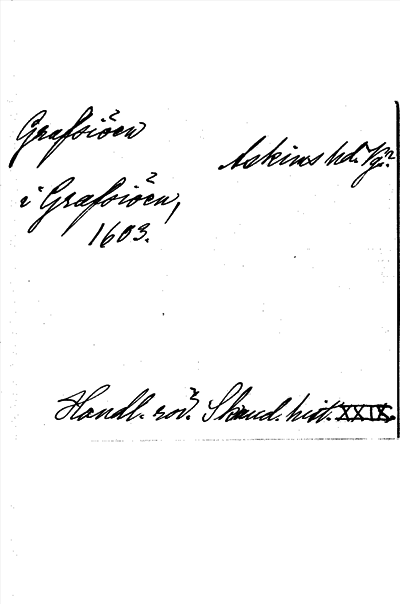 Grafsiöen
Askims hd. Vg.
i Grafsiöen,
1603.
Handl. rör. Skand. hist. XXIX.